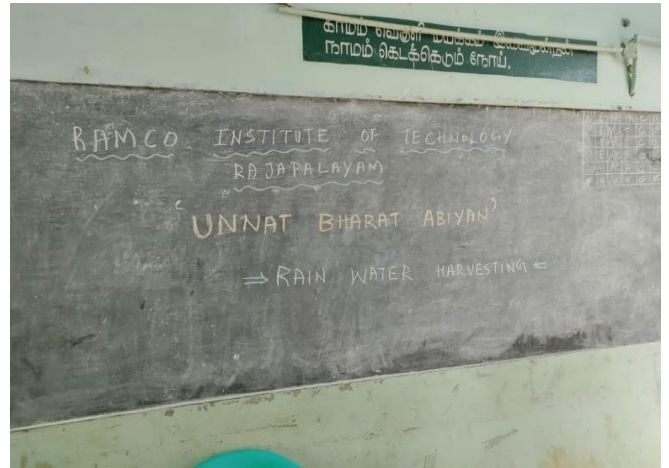 காமம் வெகுளி மயக்கம் இவைமூன்றன்
நாமம் கெடக்கெடும் நோய்.
RAMCO INSTITUTE OF TECHNOLOGY
RAJAPALAYAM
'UNNAT BHARAT ABIYAN'
⇒ RAIN WATER HARVESTING ⇐